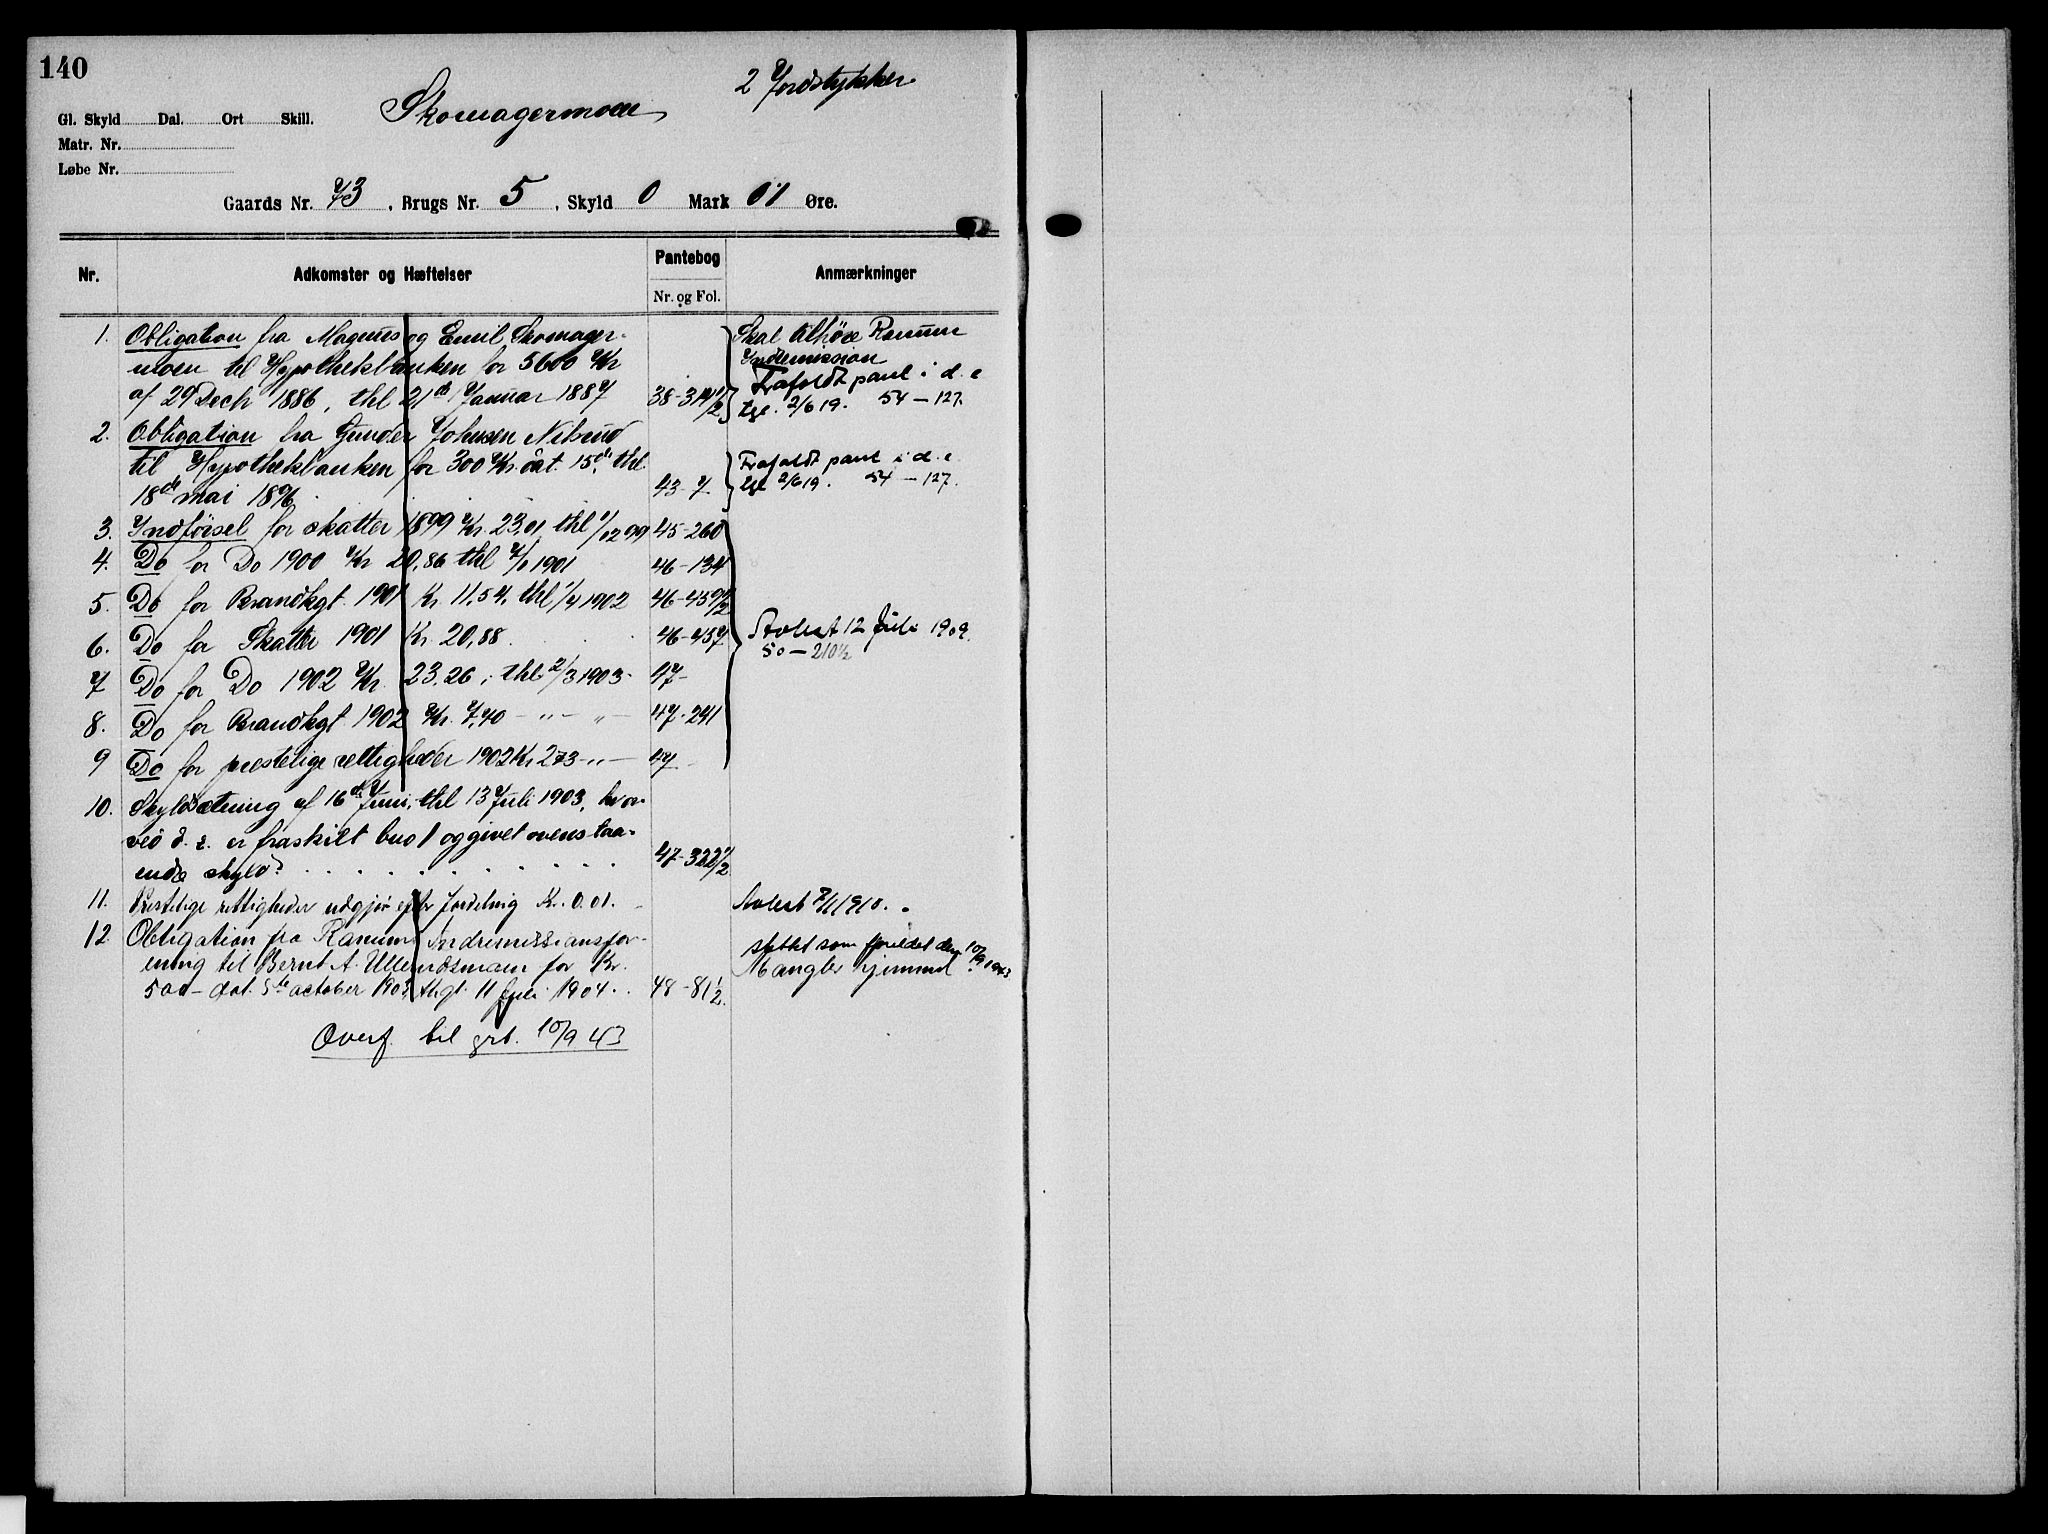 140
2 Jordstykker
Skomagermoen
Gl. Skyld Dal. Ort Skill.
Matr. Nr.
Løbe Nr.
Gaards Nr. 73, Brugs Nr. 5, Skyld 0 Mark 01 Øre.
Nr. Adkomster og Hæftelser Pantebog Anmærkninger
Nr. og Fol.
1. Obligation fra Magnus og Emil Skomager- Skal tilhöre Ranum
moen til Hypothekbanken for 5600 Kr Indremission
af 29 Decb 1886, thl 21de Januar 1887 38-314 1/2 Frafaldt pant i d. e
tgl. 2/6 19. 54-127.
2. Obligation fra Gunder Johnsen
til Hypothekbanken for 300 Kr. dat. 15de thl. Frafaldt pant i d. e.
18de mai 1896. 43-7 tgl 2/6 19. 54-127.
3. Indförsel for skatter 1899 Kr. 23,01 thl 1/12 99 45-260
4. Do for Do 1900 Kr 20,86 thl 7/1 1901 46-134
5. Do for Brandkgt. 1901 Kr. 11,54, thl 1/4 1902 46-459 1/2
6. Do for Skatter 1901 Kr. 20,88. 46-457 Avlest 12 Juli 1909.
50-210 1/2
7 Do for Do 1902 Kr. 23,26, thl 2/3 1903. 47-
8. Do for Brandkgt 1902 Kr. 7,40 -"- "- 47-241
9 Do for prestelige rettigheder 1902 Kr 273 -"- 47-
10. Skyldsætning af 16de Juni, thl 13 Juli 1903, hvor-
ved d. e. er fraskilt bno 1 og givet ovenstaa-
ende skyld. 47-322 1/2
11. Prestelige rettigheder udgjør efter fordeling Kr. 0.01. Avlest 7/1 1910.
12. Obligation fra Ranum Indremissionsfor- slettet som foreldet den 10/9 1943
ening til Bernt A. Ullerndsmoen for Kr. Mangler hjemmel
500 - dat. 5te october 1903, thgl. 11 Juli 1904. 48-81 1/2.
Overf. til grb. 10/9 43